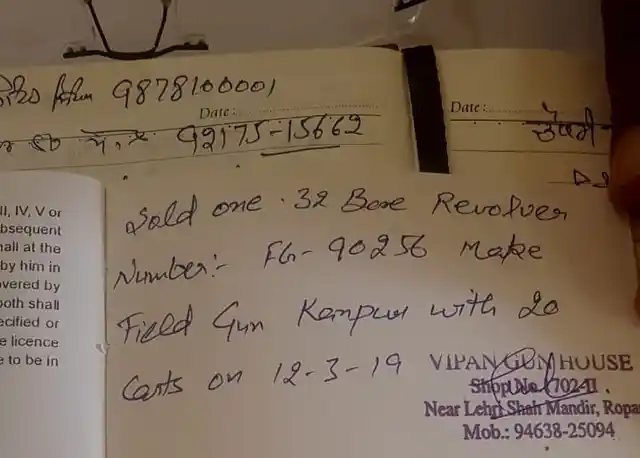 9878100001
Date:
92175-15662
Date:
II, IV, V or
bsequent
hall at the
by him in
vered by
both shall
ecified or
e licence
e to be in
Sold one .32 Bore Revolver
Number:- FG-90256 Make
Field Gun Kanpur with 20
Carts on 12-3-19
VIPAN GUN HOUSE
Shop No. 702-II.
Near Lehri Shah Mandir, Ropa
Mob.: 94638-25094